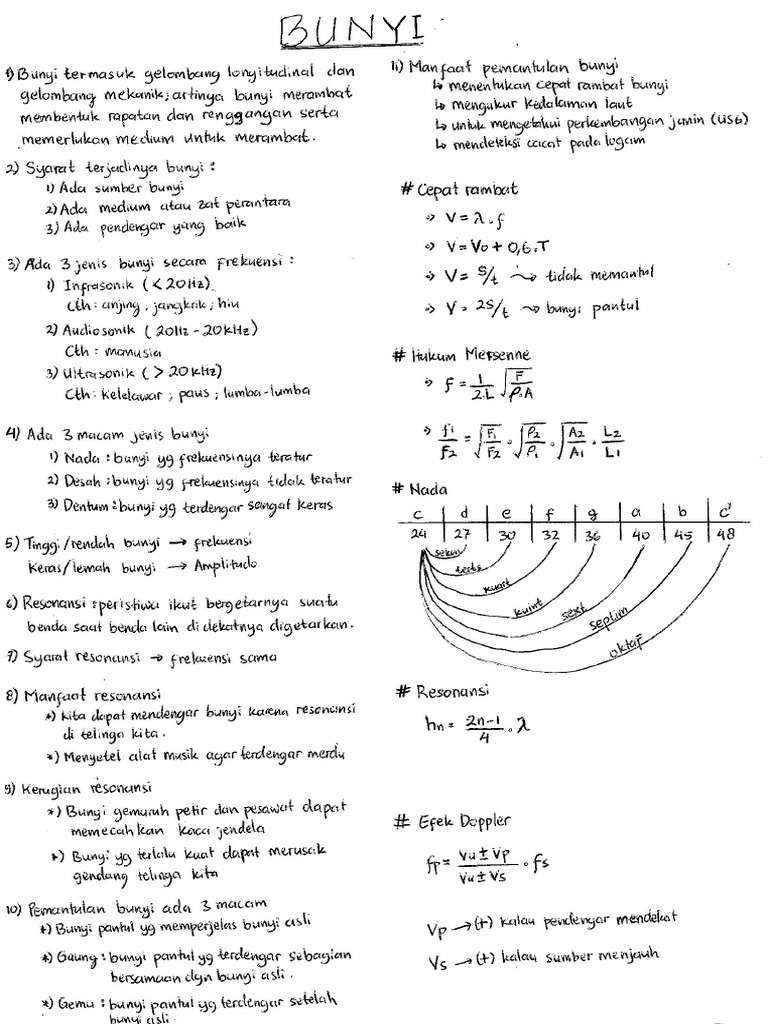 BUNYI
1) Bunyi termasuk gelombang longitudinal dan
gelombang mekanik; artinya bunyi merambat
membentuk rapatan dan renggangan serta
memerlukan medium untuk merambat.
2) Syarat terjadinya bunyi :
1) Ada sumber bunyi
2) Ada medium atau zat perantara
3) Ada pendengar yang baik
3) Ada 3 jenis bunyi secara frekuensi :
1) Infrasonik (< 20Hz)
Cth : anjing , jangkrik ; hiu
2) Audiosonik (20Hz - 20kHz)
Cth : manusia
3) Ultrasonik (> 20kHz)
Cth : kelelawar ; paus ; lumba-lumba
4) Ada 3 macam jenis bunyi
1) Nada : bunyi yg frekuensinya teratur
2) Desah : bunyi yg frekuensinya tidak teratur
3) Dentum : bunyi yg terdengar sangat keras
5) Tinggi/rendah bunyi → frekuensi
keras/lemah bunyi → Amplitudo
6) Resonansi : peristiwa ikut bergetarnya suatu
benda saat benda lain di dekatnya digetarkan.
7) Syarat resonansi → frekuensi sama
8) Manfaat resonansi
*) kita dapat mendengar bunyi karena resonansi
di telinga kita.
*) Menyetel alat musik agar terdengar merdu
9) Kerugian resonansi
*) Bunyi gemuruh petir dan pesawat dapat
memecahkan kaca jendela
*) Bunyi yg terlalu kuat dapat merusak
gendang telinga kita
10) Pemantulan bunyi ada 3 macam
*) Bunyi pantul yg memperjelas bunyi asli
*) Gaung : bunyi pantul yg terdengar sebagian
bersamaan dgn bunyi asli.
*) Gema : bunyi pantul yg terdengar setelah
bunyi asli.
11) Manfaat pemantulan bunyi
↳ menentukan cepat rambat bunyi
↳ mengukur kedalaman laut
↳ untuk mengetahui perkembangan janin (USG)
↳ mendeteksi cacat pada logam
# Cepat rambat
→ V = λ . f
→ V = Vo + 0,6 . T
→ V = s/t → tidak memantul
→ V = 2s/t → bunyi pantul
# Hukum Mersenne
→ f = 1/2.L √F/ρ.A
→ f1/f2 = √F1/F2 . √ρ2/ρ1 . √A2/A1 . L2/L1
# Nada
c | d | e | f | g | a | b | c'
24 | 27 | 30 | 32 | 36 | 40 | 45 | 48
sekun
terts
kuart
kuint
sext
septim
oktaf
# Resonansi
hn = 2n-1/4 . λ
# Efek Doppler
fp = Vu ± Vp/Vu ± Vs . fs
Vp → (+) kalau pendengar mendekat
Vs → (+) kalau sumber menjauh